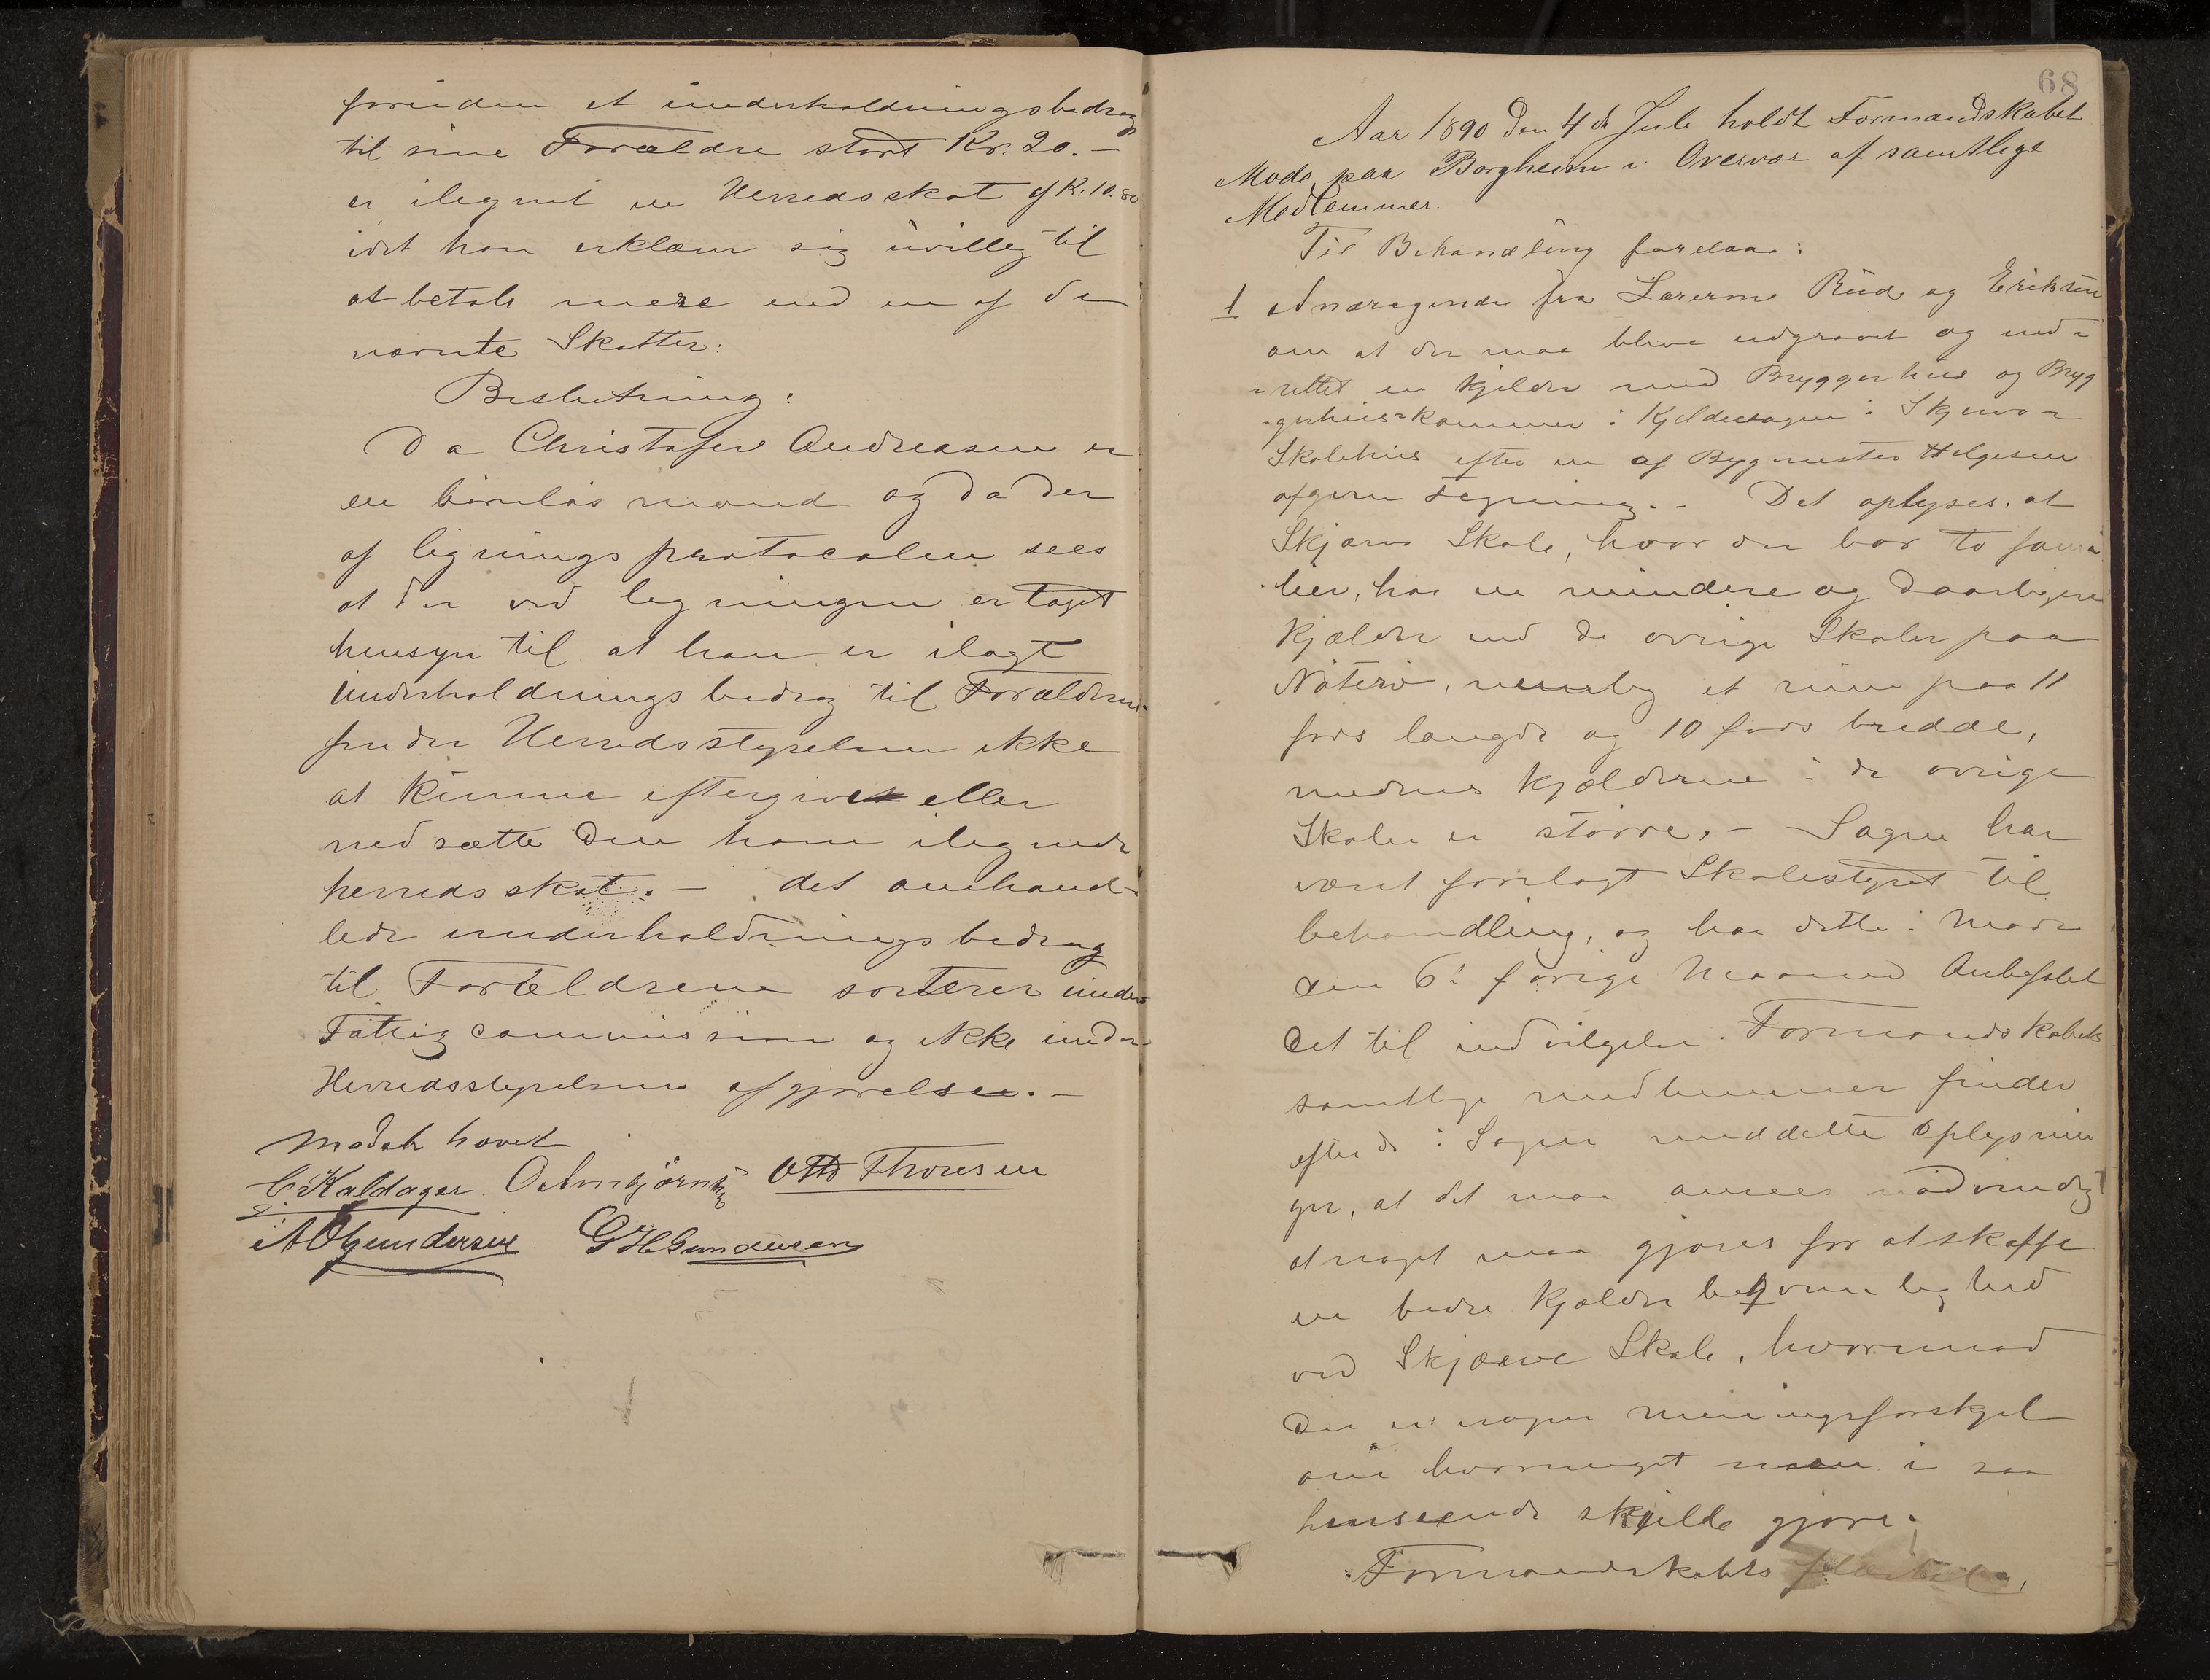 foruden et underholdningsbedrag
til sine Forældre stort Kr. 20.-
er ilegnet en Herredsskat af Kr. 10.80
idet han erklærer sig uvillig til
at betale mere end en af de
nævnte Skatter.
Beslutning:
Da Christofer Andreasen er
en barnløs mand og da der
af ligningsprotocolen sees
at der ved ligningen er taget
hensyn til at han er ilagt
underholdningsbedrag til Forældrene
finder Herredsstyrelsen ikke
at kunne eftergive eller
nedsætte den ham ilegnede
herredsskat.- det omhand-
lede underholdningsbedrag
til Forældrene sorterer under
Fattigcommissionen og ikke under
Herredsstyrelsens afgjørelse.-
Mødet hævet
C. Kaldager. O Arnbjørnsen Otto Thoresen
A O Gundersen G H Gundersen
68
Aar 1890 den 4de Juli holdt Formandskabet
Møde paa Borgheim i Overvær af samtlige
Medlemmer.
Til Behandling forelaa:
1 Andragende fra Lærerne Ruud og Eriksen
om at der maa blive udgravet og ind-
rettet en kjelder med Bryggerhus og Bryg
gerhus-kammer i Kjelderetagen i Skjerve
Skolehus efter en af Bygmester Helgesen
afgiven Tegning.- Det oplyses, at
Skjærve Skole, hvor der bor to fami
lier, har en mindre og daarligere
Kjælder end de øvrige Skoler paa
Nøterø, nemlig et rum paa 11
fods længde og 10 fods bredde,
medens kjælderne i de øvrige
Skoler er større.- Sagen har
været forelagt Skolestyret til
behandling, og har dette i Møde
den 6. forige Maaned Anbefalet
det til indvilgelse. Formandskabets
samtlige medlemmer finder
efter de i Sagen meddelte oplysnin
ger, at det maa ansees nødvendigt
at noget maa gjøres for at skaffe
en bedre Kjælder beqvemmelighed
ved Skjærve Skole, hvorimod
der er nogen meningsforskjel
om hvormeget man i saa
henseende skulde gjøre.
Formandskabets